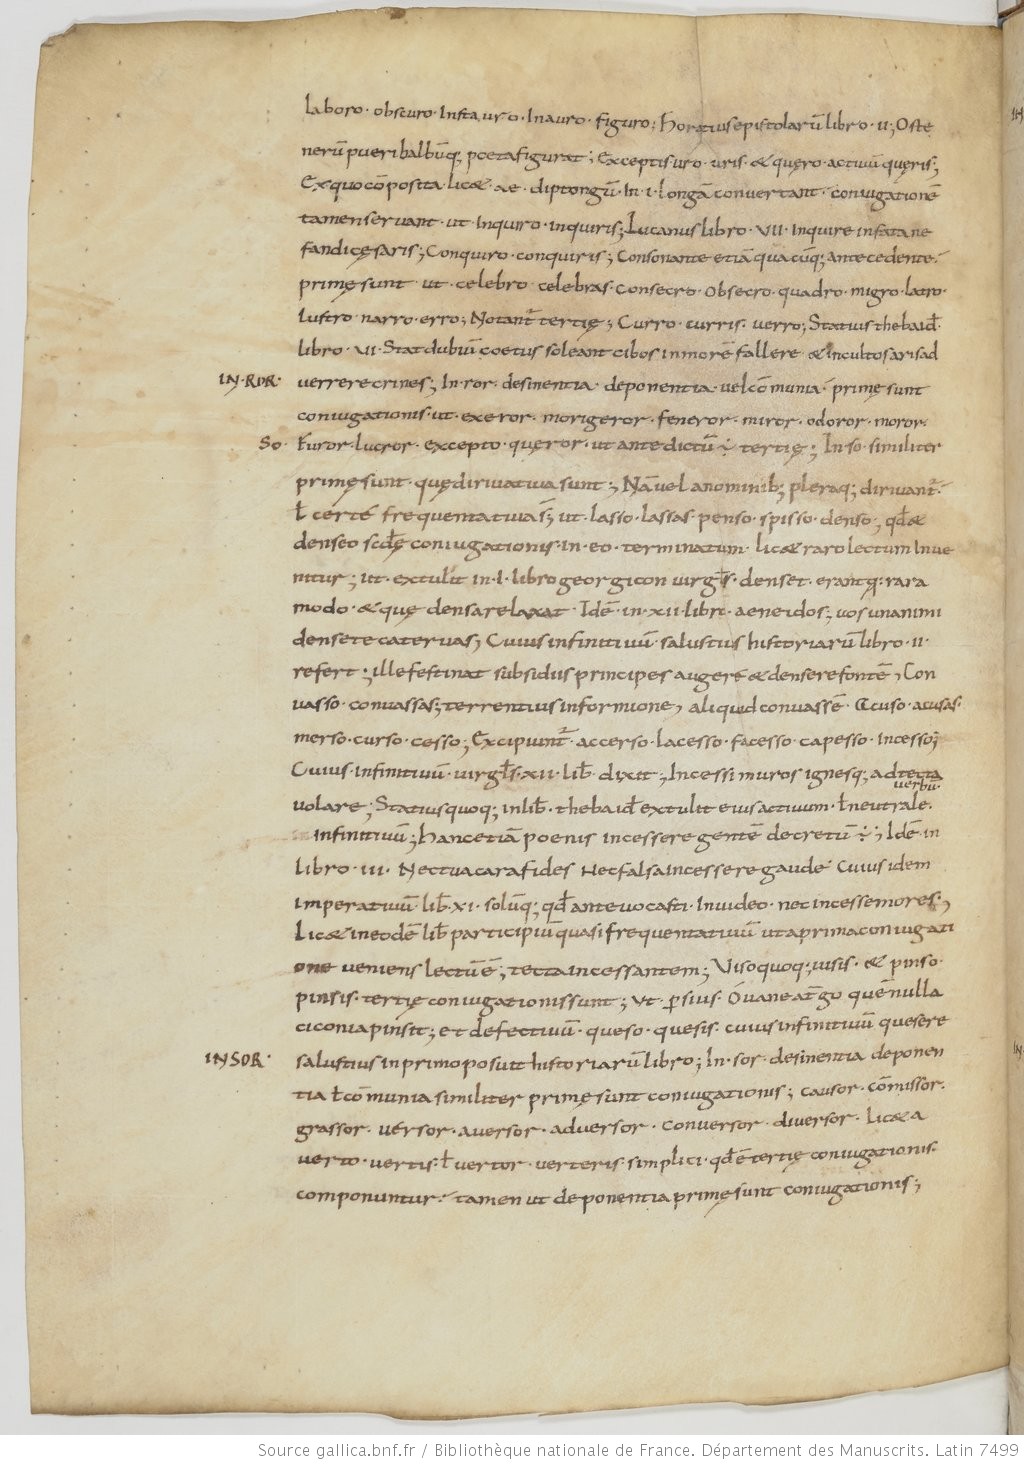 laboro· obscuro· Instauro· Inauro· figuro; horatius epistolarū libro· II; Os te
nerū pueri balbūq; poeta figurat; Exceptis uro· uris· & quęro· actiuū quęris;
Ex quo cōposita lic& ae· diptongū· In· i· longā conuertant· coniugationē
tamen seruant· ut Inquiro· inquiris; Lucanus libro· VII· Inquire in fata ne
fandi cęsaris; Conquiro· conquiris; Consonante etiā quacūq; antecedente·
primę sunt ut· celebro celebras· Consecro· obsecro· quadro· migro· latro·
lustro· narro· erro; Notant̄ tertię; Curro· curris· uerro; Statius thebaid̄·
libro· VII· Stat dubiū coetus soleant cibos in morē fallere & incultos aris ad
IN· ROR· uerrere crines; In· ror· desinentia· deponentia· uel cōmunia· primę sunt
coniugationis· ut· exeror· morigeror· feneror· miror· odoror· moror·
SO· furor· lucror· excepto· quęror· ut ante dictū ÷ tertię; In· so· similiter
primę sunt· quę diriuatiua sunt; Nā uel a nominib; pleraq; diriuant̄·
ł certe frequentatiua s̄; ut· lasso· lassas· penso· spisso· denso; qd̄ &
denseo scd̄ę coniugationis· in· eo· terminatum· lic& raro lectum Inue
nitur; ut· extulit in· I· libro georgicon uirgl̄s· denset· erant q̄· rara
modo· & quę densa relaxat· Idē· in· XII· libr̄· aeneidos; uos unanimi
densete cateruas; Cuius infinitiuū· salustius historiarū libro· II·
refert; ille festinat subsidiis principes augere & densere fontē; Con
uasso· conuassas; terrentius in formione, aliquid conuassē· Accuso· acusas·
merso· curso· cesso; Excipiunt̄· accerso· lacesso· facesso· capesso· incesso;
Cuius· infinitiuū· uirgl̄s· XII· lib̄· dixit; Incessi muros ignesq; ad tecta
uerbū·
uolare; Statius quoq; in lib̄· thebaid̄ extulit eius actiuum· ł neutrale·
infinitiuū; hanc etiā poenis incessere gentē decretū ÷; Idē in
libro· III· Nec tua cara fides Nec falsa incessere gaude· Cuius idem
imperatiuū· lib̄· XI· solūq; qd̄ ante uocasti· Inuideo· nec incesse mores;
Lic& in eodē lib̄ participiū quasi frequentatiuū ut a prima coniugati
one ueniens lectū ē; tecta incessantem; Viso quoq; uisis· & pinso·
pinsis· tertię coniugationis sunt; ut· ꝑsius· O iane a t̄go quē nulla
ciconia pinsit; et defectiuū· queso· quesis· cuius infinitiuū quesere
IN SOR· salustius in primo posuit historiarū libro; In· sor· desinentia deponen
tia ł cōmunia similiter primę sunt coniugationis; causor· cōmissor·
grassor· uersor· auersor· aduersor· conuersor· diuersor· lic& a
uerto· uertis· ł uertor· uerteris· simplici· qd̄ ē tertię coniugationis·
componuntur· tamen ut deponentia primę sunt coniugationis;
Source gallica.bnf.fr / Bibliothèque nationale de France. Département des Manuscrits. Latin 7499